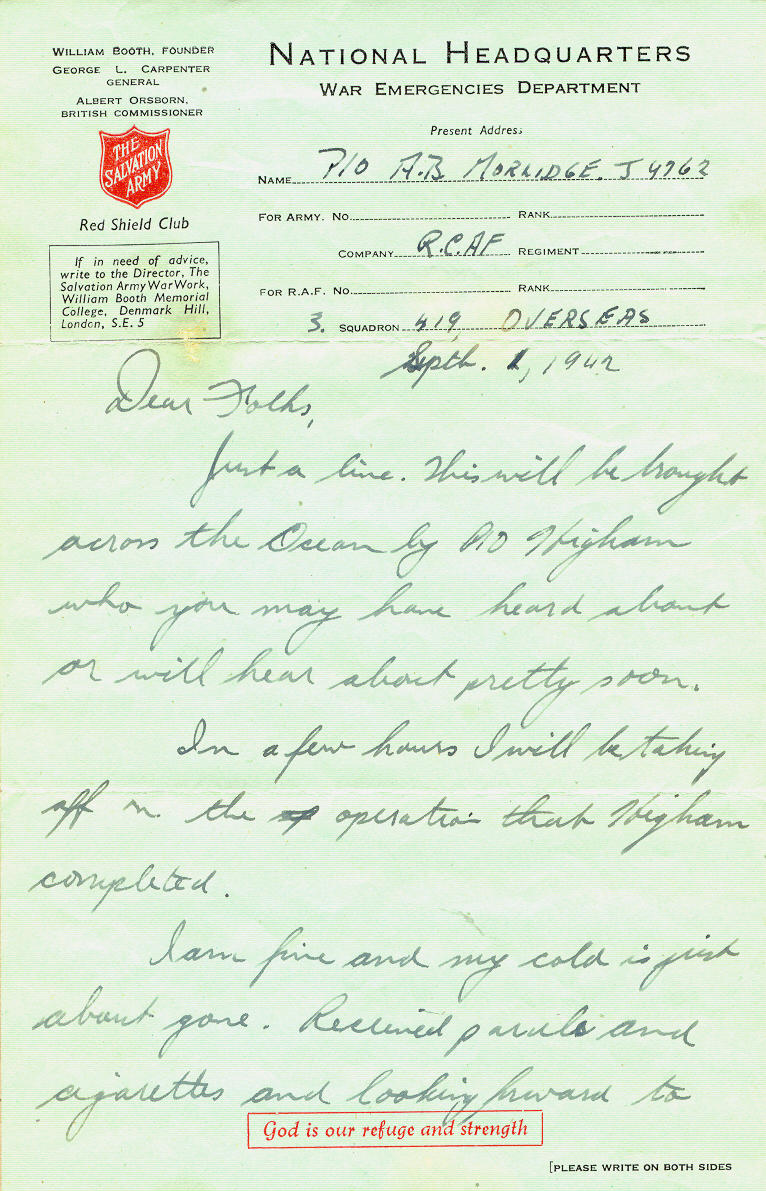 WILLIAM BOOTH, FOUNDER
GEORGE L. CARPENTER
GENERAL
ALBERT ORSBORN,
BRITISH COMMISSIONER
THE
SALVATION
ARMY
Red Shield Club
If in need of advice,
write to the Director, The
Salvation Army War Work,
William Booth Memorial
College, Denmark Hill,
London, S.E. 5
NATIONAL HEADQUARTERS
WAR EMERGENCIES DEPARTMENT
Present Address
NAME P/O A.B. MORLIDGE. J4962
FOR ARMY. NO. RANK
COMPANY R.C.AF REGIMENT
FOR R.A.F. NO. RANK
3. SQUADRON 419 OVERSEAS
Septh. 1, 1942
Dear Folks,
Just a line. This will be brought
across the Ocean by P/O Higham
who you may have heard about
or will hear about pretty soon.
In a few hours I will be taking
off on the operation that Higham
completed.
I am fine and my cold is just
about gone. Received parcels and
cigarettes and looking forward to
God is our refuge and strength
[PLEASE WRITE ON BOTH SIDES